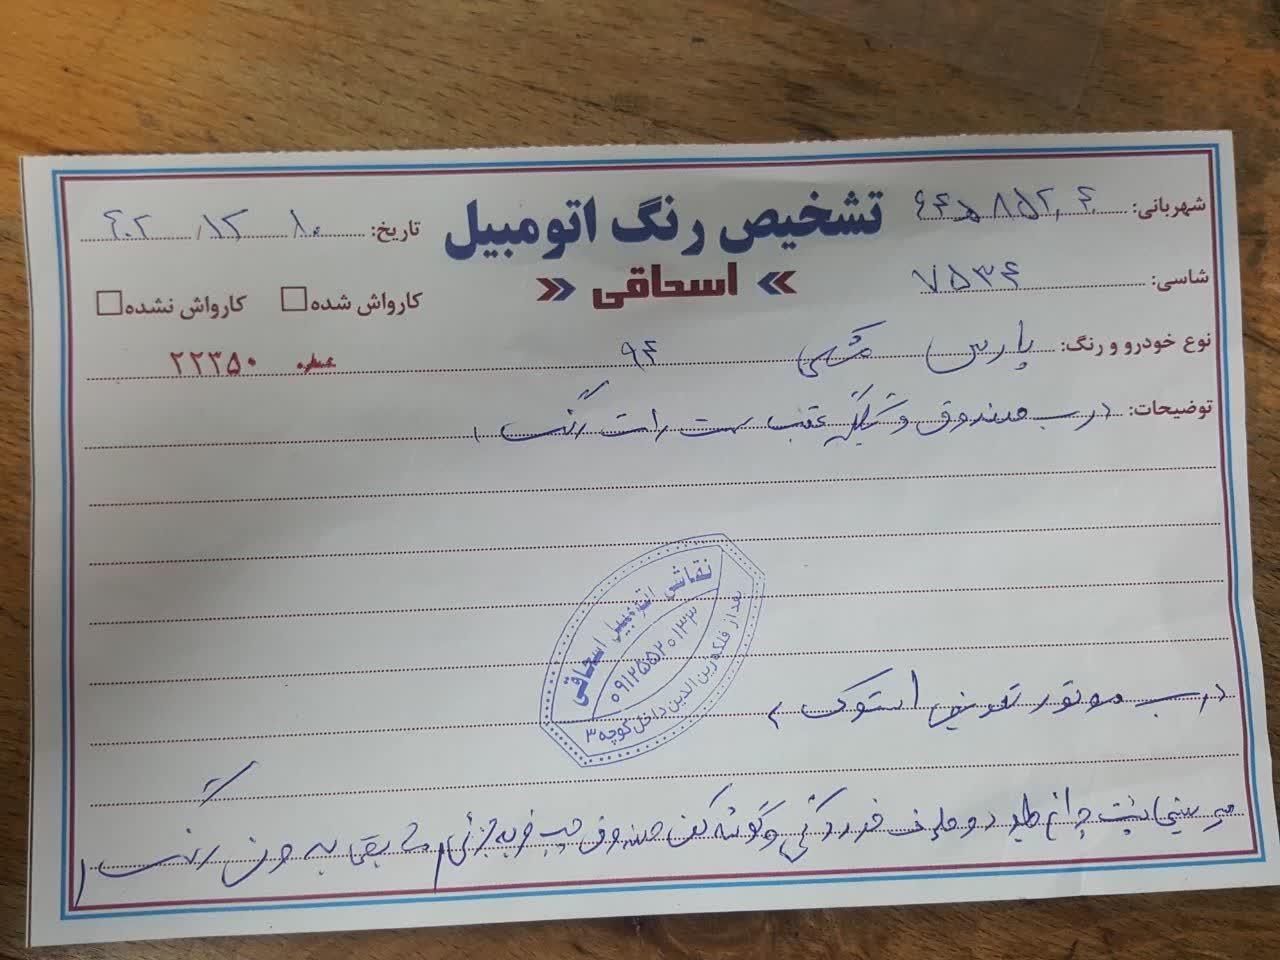 تشخیص رنگ اتومبیل
« اسحاقی »
شهربانی:
تاریخ: ۴۰۲ / ۱۲ / ۱۰
شاسی: ۷۵۳۴
کارواش شده
کارواش نشده
نوع خودرو و رنگ: پارس مشکی ۹۴
۲۲۳۵۰
توضیحات: درب صندوق و گلگیر عقب سمت راست رنگ
نقاشی اتومبیل اسحاقی
۰۹۱۲۵۵۲۰۱۳۳
بعد از فلکه زین الدین داخل کوچه ۳
درب موتور تعویض استوک
سینی پشت چراغ جلو دو طرف خوردگی و گوشه کف صندوق چپ ضربه جزئی مابقی بدون رنگ